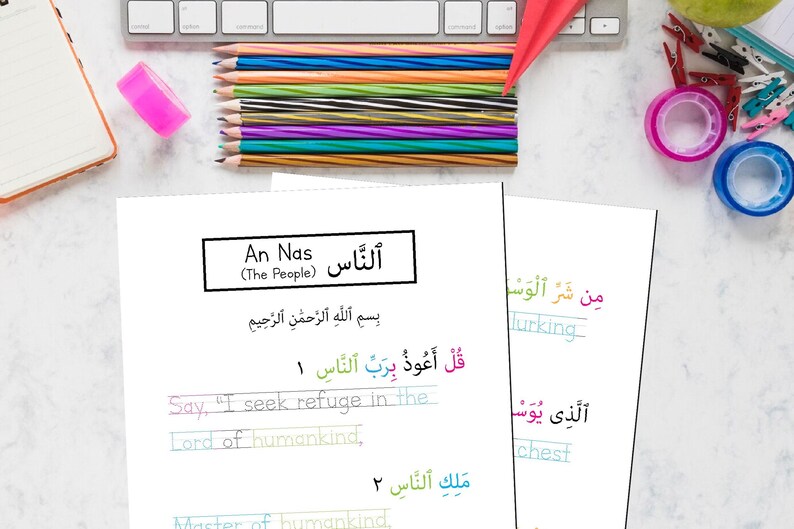 control
option
command
command
option
An Nas
(The People)
ٱلنَّاس
بِسمِ ٱللَّهِ ٱلرَّحمَٰنِ ٱلرَّحِيمِ
قُلْ أَعُوذُ بِرَبِّ ٱلنَّاسِ ١
Say, "I seek refuge in the
Lord of humankind,
مَلِكِ ٱلنَّاسِ ٢
Master of humankind,
مِن شَرِّ ٱلْوَسْ
lurking
ٱلَّذِى يُوَسْ
chest